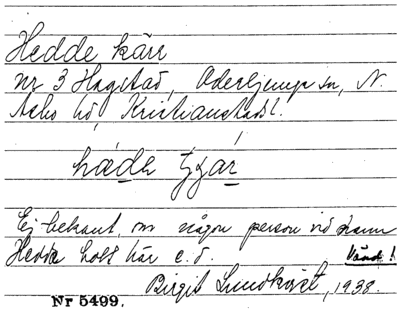 Hedde kärr
nr 3 Hagstad, Oderljunga sn, N.
Åsbo hd, Kristianstads l.
hède
Ej bekant, om någon person vid namn
Hedde haft här e. d. Vänd!
Birgit Lundkvist, 1938.
Nr 5499.